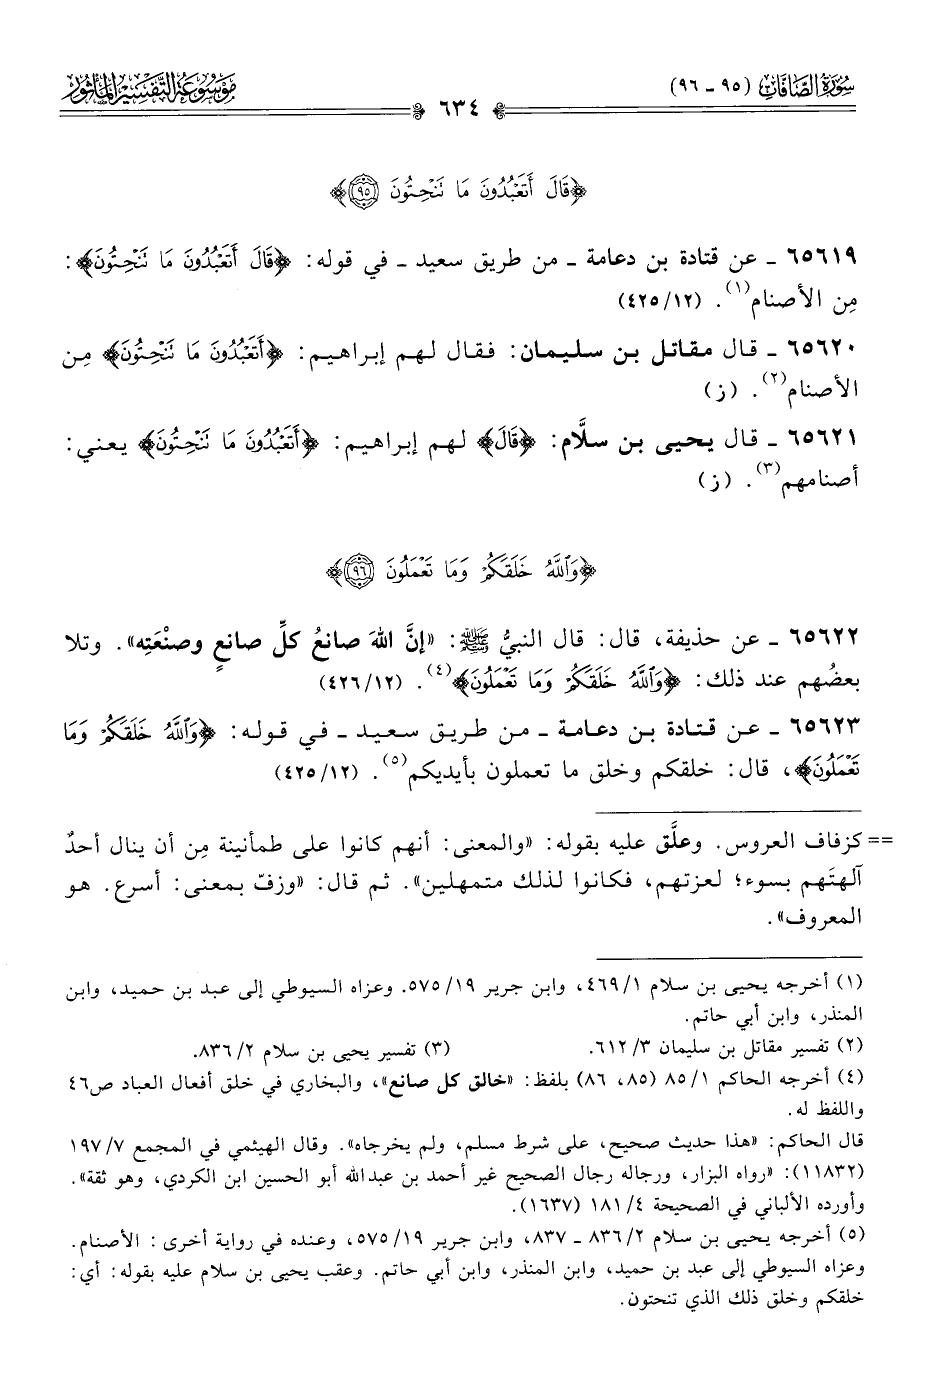 سُورَةُ الصَّافَّاتِ (٩٥ - ٩٦)
٦٣٤
مَوْسُوعَةُ التَّفْسِيرِ المَأْثُور
﴿قَالَ أَتَعْبُدُونَ مَا تَنْحِتُونَ ٩٥﴾
٦٥٦١٩ - عن قتادة بن دعامة - من طريق سعيد - في قوله: ﴿قَالَ أَتَعْبُدُونَ مَا تَنْحِتُونَ﴾:
مِن الأصنام(١). (٤٢٥/١٢)
٦٥٦٢٠ - قال مقاتل بن سليمان: فقال لهم إبراهيم: ﴿أَتَعْبُدُونَ مَا تَنْحِتُونَ﴾ مِن
الأصنام(٢). (ز)
٦٥٦٢١ - قال يحيى بن سلَّام: ﴿قَالَ﴾ لهم إبراهيم: ﴿أَتَعْبُدُونَ مَا تَنْحِتُونَ﴾ يعني:
أصنامهم(٣). (ز)
﴿وَٱللَّهُ خَلَقَكُمْ وَمَا تَعْمَلُونَ ٩٦﴾
٦٥٦٢٢ - عن حذيفة، قال: قال النبيُّ ﷺ: «إنَّ اللهَ صانعُ كلِّ صانعٍ وصنْعَتِه». وتلا
بعضُهم عند ذلك: ﴿وَٱللَّهُ خَلَقَكُمْ وَمَا تَعْمَلُونَ﴾(٤). (٤٢٦/١٢)
٦٥٦٢٣ - عن قتادة بن دعامة - من طريق سعيد - في قوله: ﴿وَٱللَّهُ خَلَقَكُمْ وَمَا
تَعْمَلُونَ﴾، قال: خلقكم وخلق ما تعملون بأيديكم(٥). (٤٢٥/١٢)
== كزفاف العروس. وعلَّق عليه بقوله: «والمعنى: أنهم كانوا على طمأنينة مِن أن ينال أحدٌ
آلهتَهم بسوء؛ لعزتهم، فكانوا لذلك متمهلين». ثم قال: «وزفّ بمعنى: أسرع. هو
المعروف».
(١) أخرجه يحيى بن سلام ٤٦٩/١، وابن جرير ٥٧٥/١٩. وعزاه السيوطي إلى عبد بن حميد، وابن
المنذر، وابن أبي حاتم.
(٢) تفسير مقاتل بن سليمان ٦١٢/٣. (٣) تفسير يحيى بن سلام ٨٣٦/٢.
(٤) أخرجه الحاكم ٨٥/١ (٨٥، ٨٦) بلفظ: «خالق كل صانع»، والبخاري في خلق أفعال العباد ص٤٦
واللفظ له.
قال الحاكم: «هذا حديث صحيح، على شرط مسلم، ولم يخرجاه». وقال الهيثمي في المجمع ١٩٧/٧
(١١٨٣٢): «رواه البزار، ورجاله رجال الصحيح غير أحمد بن عبدالله أبو الحسين ابن الكردي، وهو ثقة».
وأورده الألباني في الصحيحة ١٨١/٤ (١٦٣٧).
(٥) أخرجه يحيى بن سلام ٨٣٦/٢ - ٨٣٧، وابن جرير ٥٧٥/١٩، وعنده في رواية أخرى: الأصنام.
وعزاه السيوطي إلى عبد بن حميد، وابن المنذر، وابن أبي حاتم. وعقب يحيى بن سلام عليه بقوله: أي:
خلقكم وخلق ذلك الذي تنحتون.